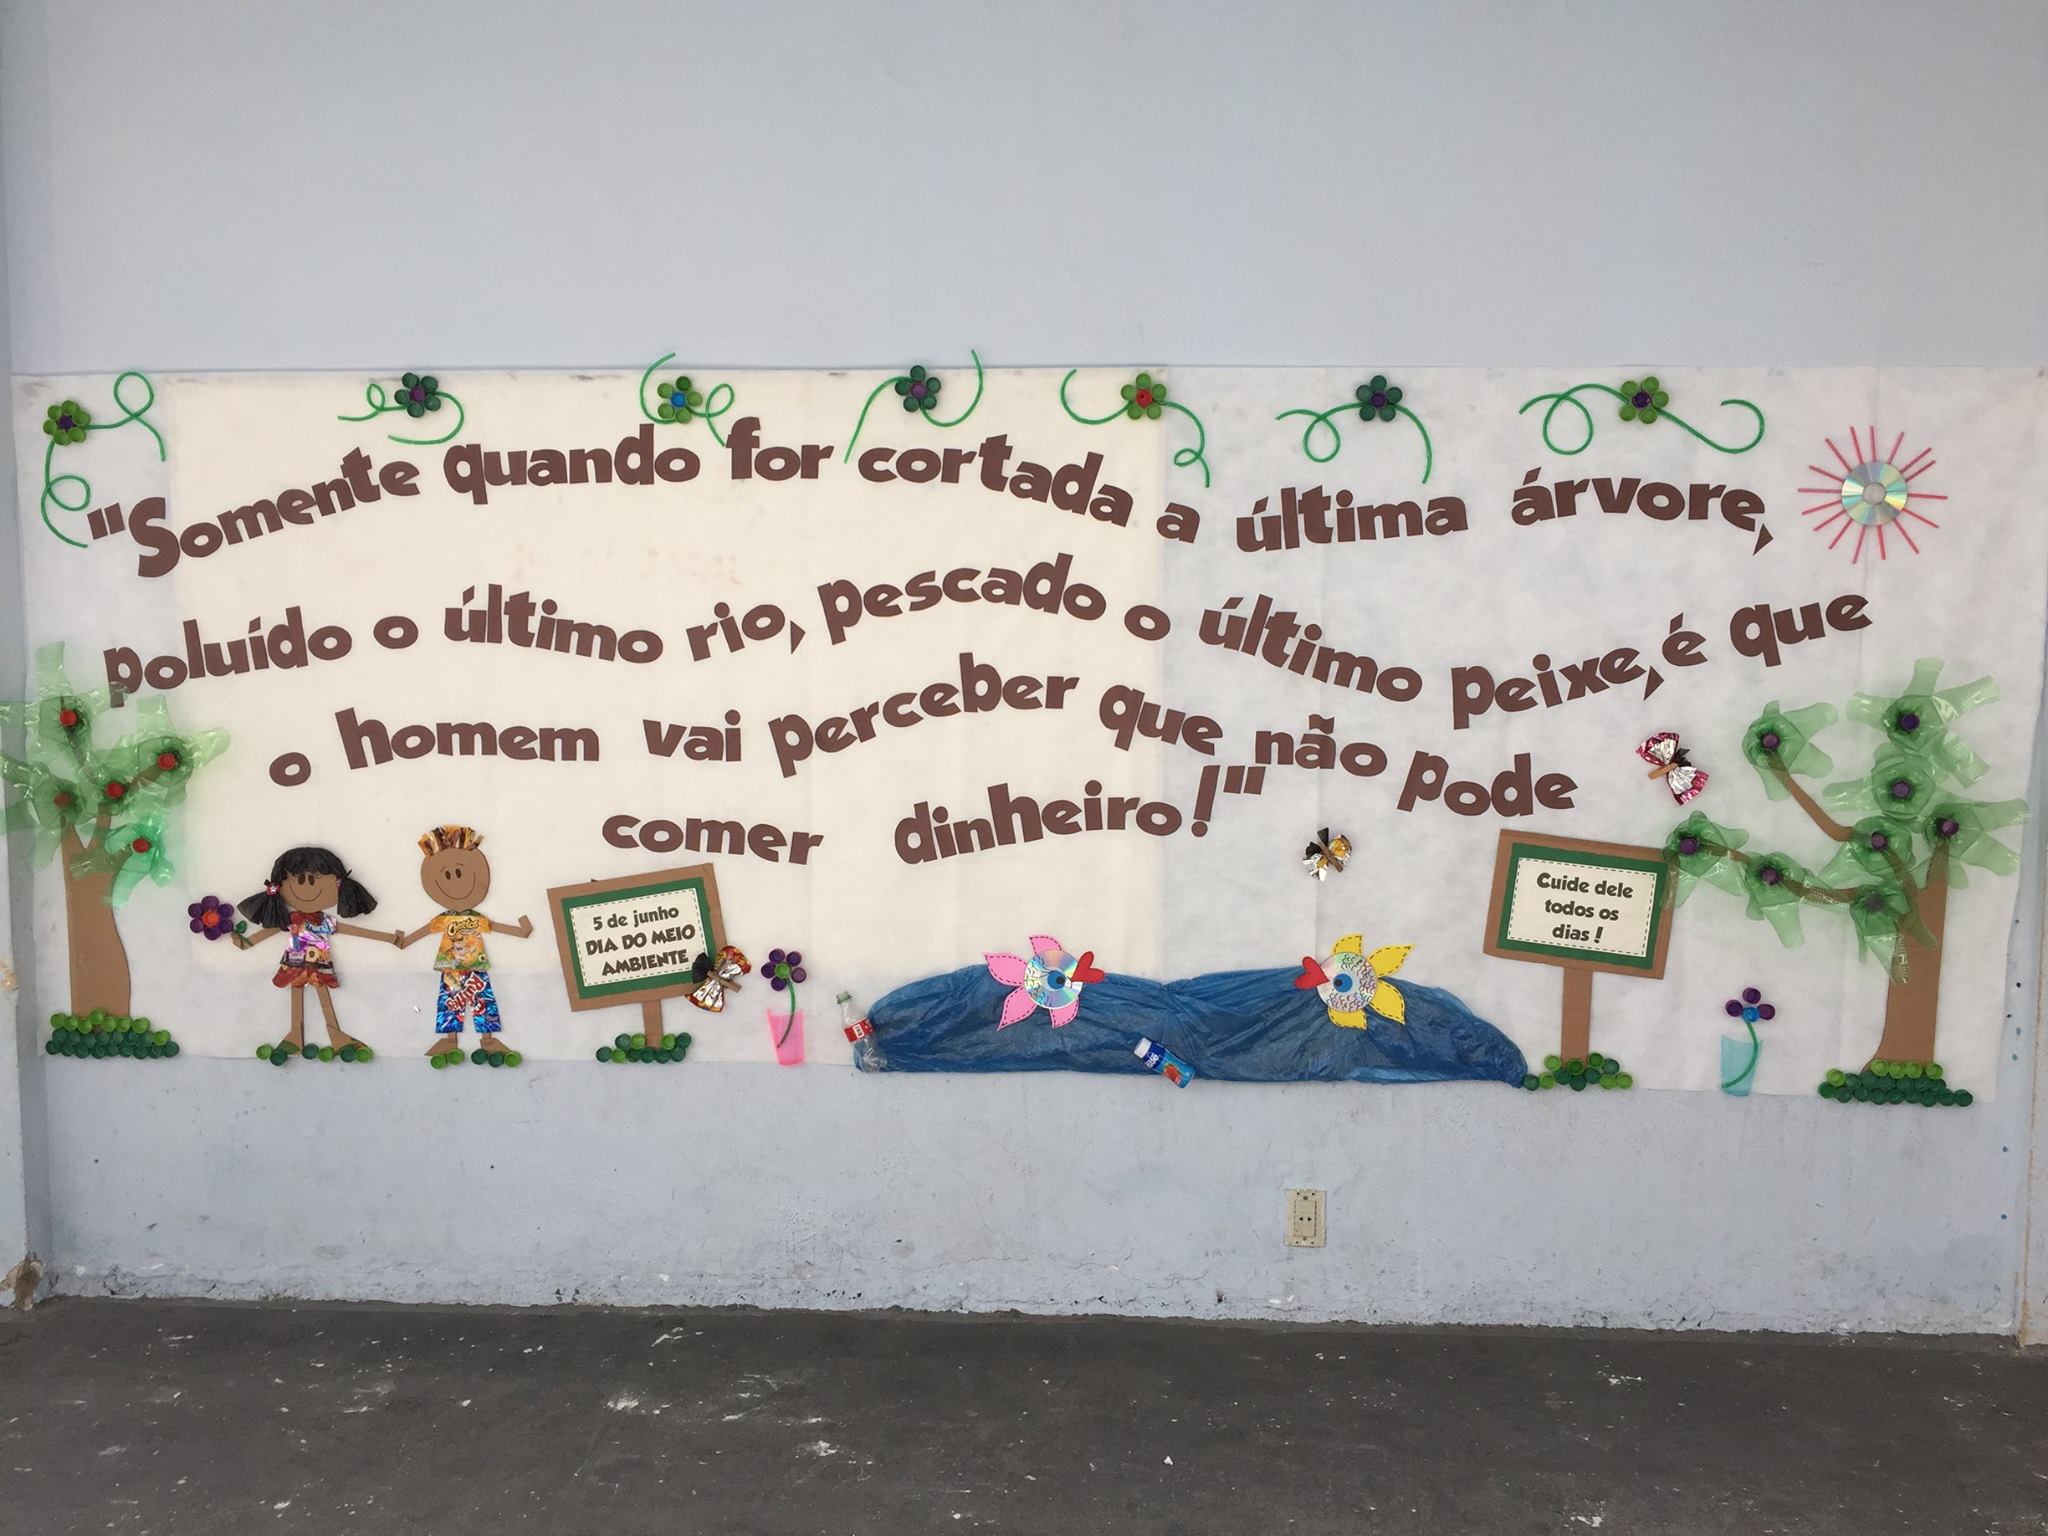 "Somente quando for cortada a última árvore,
poluído o último rio, pescado o último peixe, é que
o homem vai perceber que não pode
comer dinheiro!"
5 de junho
DIA DO MEIO
AMBIENTE
Cuide dele
todos os
dias!
Cheetos
Ruffles